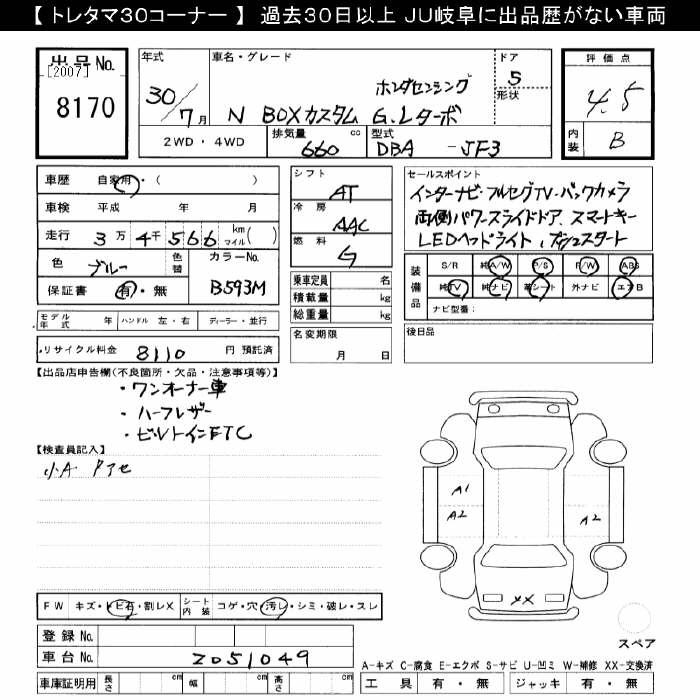 【 トレタマ30コーナー 】 過去30日以上 JU岐阜に出品歴がない車両
出品 No.
[2007]
8170
年式
30/7月
車名・グレード
ホンダセンシング
N BOXカスタム G.Lターボ
ドア
5
形状
評価点
4.5
内装
B
2WD ・ 4WD
排気量
660 cc
型式
DBA - JF3
車歴 自家用・( )
車検 平成 年 月
走行 3万 4千 566 km マイル( )
色 ブルー 色替 カラーNo.
保証書 有・無 B593M
モデル年式 年 ハンドル 左・右 ディーラー・並行
リサイクル料金 8110 円 預託済
シフト
AT
冷房
AAC
燃料
G
乗車定員 名
積載量 kg
総重量 kg
名変期限
月 日
セールスポイント
インターナビ・フルセグTV・バックカメラ
両側パワースライドドア、スマートキー
LEDヘッドライト、プッシュスタート
装備品
S/R 純A/W P/S P/W ABS
純TV 純ナビ 革シート 外ナビ エアB
ナビ型番:
後日品
【出品店申告欄(不良箇所・欠品・注意事項等)】
・ワンオーナー車
・ハーフレザー
・ビルトインETC
【検査員記入】
小A
A1
A2
A2
XX
スペア
FW キズ・トビ石・割レX シート内装 コゲ・穴・汚レ・シミ・破レ・スレ
登録 No.
車台 No. 2051049
車庫証明用 長さ cm 幅 cm 高さ cm
A-キズ C-腐食 E-エクボ S-サビ U-凹ミ W-補修 XX-交換済
工具 有・無 ジャッキ 有・無